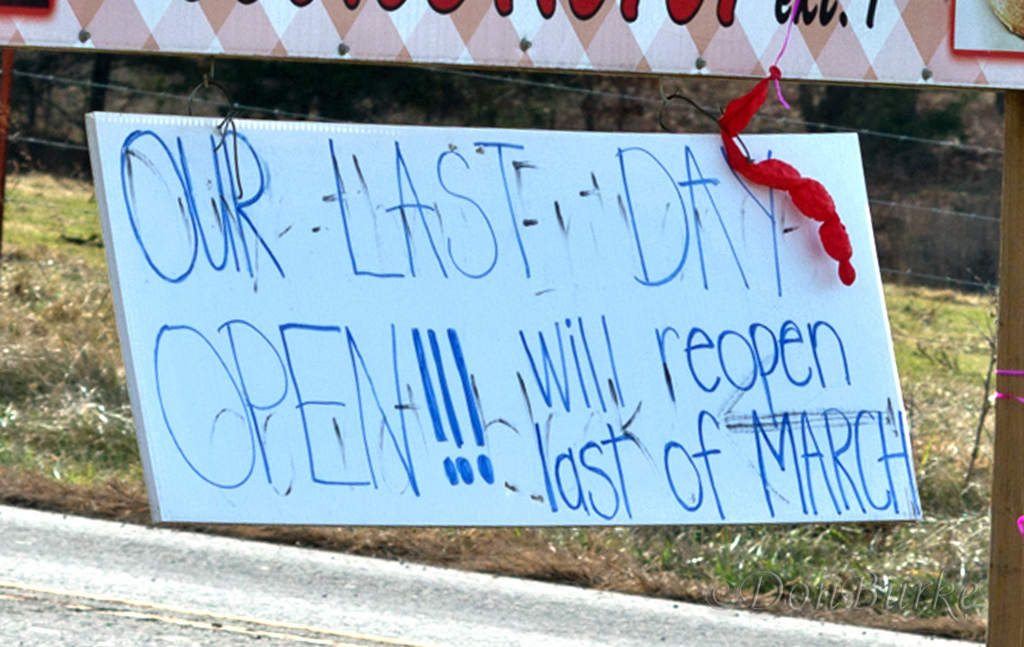 ext. 1
OUR LAST DAY
OPEN!!! will reopen
last of MARCH
©DonBurke